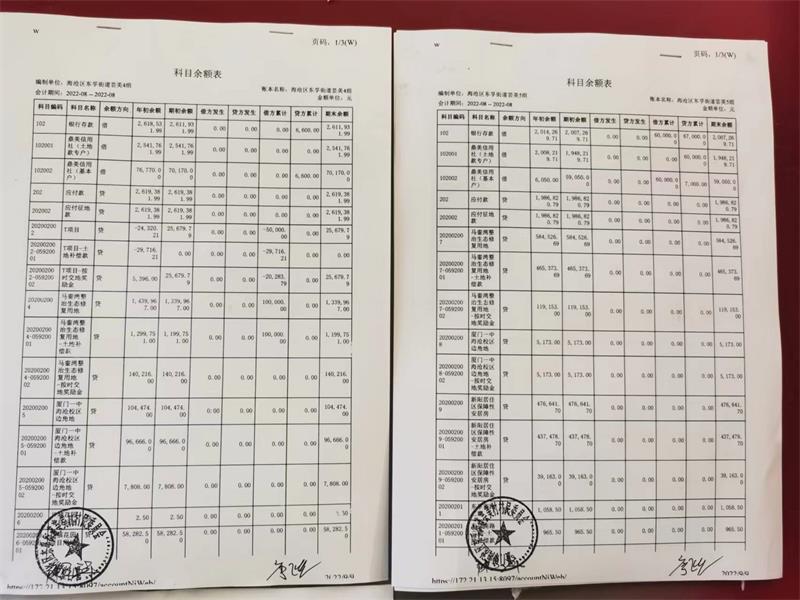 W
页码, 1/3(W)
科目余额表
编制单位: 海沧区东孚街道芸美4组
账本名称: 海沧区东孚街道芸美4组
会计期间: 2022-08——2022-08
金额单位: 元
科目编码 科目名称 余额方向 年初余额 期初余额 借方发生 贷方发生 借方累计 贷方累计 期末余额
102 银行存款 借 2,618,531.99 2,611,931.99 0.00 0.00 0.00 6,600.00 2,611,931.99
102001 鼎美信用社(土地款专户) 借 2,541,761.99 2,541,761.99 0.00 0.00 0.00 0.00 2,541,761.99
102002 鼎美信用社(基本户) 借 76,770.00 70,170.00 0.00 0.00 0.00 6,600.00 70,170.00
202 应付款 贷 2,619,381.99 2,619,381.99 0.00 0.00 0.00 0.00 2,619,381.99
202002 应付征地款 贷 2,619,381.99 2,619,381.99 0.00 0.00 0.00 0.00 2,619,381.99
202002002 T项目 贷 -24,320.21 25,679.79 0.00 0.00 -50,000.00 0.00 25,679.79
202002002-05920001 T项目-土地补偿款 贷 -29,716.21 0.00 0.00 0.00 -29,716.21 0.00 0.00
202002002-05920002 T项目-按时交地奖励金 贷 5,396.00 25,679.79 0.00 0.00 -20,283.79 0.00 25,679.79
202002004 马銮湾整治生态修复用地 贷 1,439,967.00 1,339,967.00 0.00 0.00 100,000.00 0.00 1,339,967.00
马銮湾整治生态修复用地-土地补偿款 贷 1,299,751.00 1,199,751.00 0.00 0.00 100,000.00 0.00 1,199,751.00
马銮湾整治生态修复用地-按时交地奖励金 贷 140,216.00 140,216.00 0.00 0.00 0.00 0.00 140,216.00
202002005 厦门一中海沧校区边角地 贷 104,474.00 104,474.00 0.00 0.00 0.00 0.00 104,474.00
厦门一中海沧校区边角地-土地补偿款 贷 96,666.00 96,666.00 0.00 0.00 0.00 0.00 96,666.00
厦门一中海沧校区边角地-按时交地奖励金 贷 7,808.00 7,808.00 0.00 0.00 0.00 0.00 7,808.00
2.50 2.50 0.00 0.00 0.00 0.00
58,282.50 58,282.50 0.00 0.00 0.00 0.00 58,282.50
W
页码, 1/3(W)
科目余额表
编制单位: 海沧区东孚街道芸美5组
账本名称: 海沧区东孚街道芸美5组
会计期间: 2022-08——2022-08
金额单位: 元
科目编码 科目名称 余额方向 年初余额 期初余额 借方发生 贷方发生 借方累计 贷方累计 期末余额
102 银行存款 借 2,014,269.71 2,007,269.71 0.00 0.00 60,000.00 67,000.00 2,007,269.71
102001 鼎美信用社(土地款专户) 借 2,008,219.71 1,948,219.71 0.00 0.00 0.00 60,000.00 1,948,219.71
102002 鼎美信用社(基本户) 借 6,050.00 59,050.00 0.00 0.00 60,000.00 7,000.00 59,050.00
202 应付款 贷 1,986,820.79 1,986,820.79 0.00 0.00 0.00 0.00 1,986,820.79
202002 应付征地款 贷 1,986,820.79 1,986,820.79 0.00 0.00 0.00 0.00 1,986,820.79
202002007 马銮湾整治生态修复用地 贷 584,526.69 584,526.69 0.00 0.00 0.00 0.00 584,526.69
马銮湾整治生态修复用地-土地补偿款 贷 465,373.69 465,373.69 0.00 0.00 0.00 0.00 465,373.69
马銮湾整治生态修复用地-按时交地奖励金 贷 119,153.00 119,153.00 0.00 0.00 0.00 0.00 119,153.00
202002008 厦门一中海沧校区边角地 贷 5,173.00 5,173.00 0.00 0.00 0.00 0.00 5,173.00
厦门一中海沧校区边角地-按时交地奖励金 贷 5,173.00 5,173.00 0.00 0.00 0.00 0.00 5,173.00
202002009 新阳居住区保障性安居房 贷 476,641.70 476,641.70 0.00 0.00 0.00 0.00 476,641.70
新阳居住区保障性安居房-土地补偿款 贷 437,478.70 437,478.70 0.00 0.00 0.00 0.00 437,478.70
新阳居住区保障性安居房-按时交地奖励金 贷 39,163.00 39,163.00 0.00 0.00 0.00 0.00 39,163.00
1,058.50 1,058.50 0.00 0.00 0.00 0.00 1,058.50
965.50 965.50 0.00 0.00 0.00 0.00 965.50
https://172.21.13.15:8097/accountNjWeb/
2022/9/9
https://172.21.13.15:8097/accountNjWeb/
2022/9/9